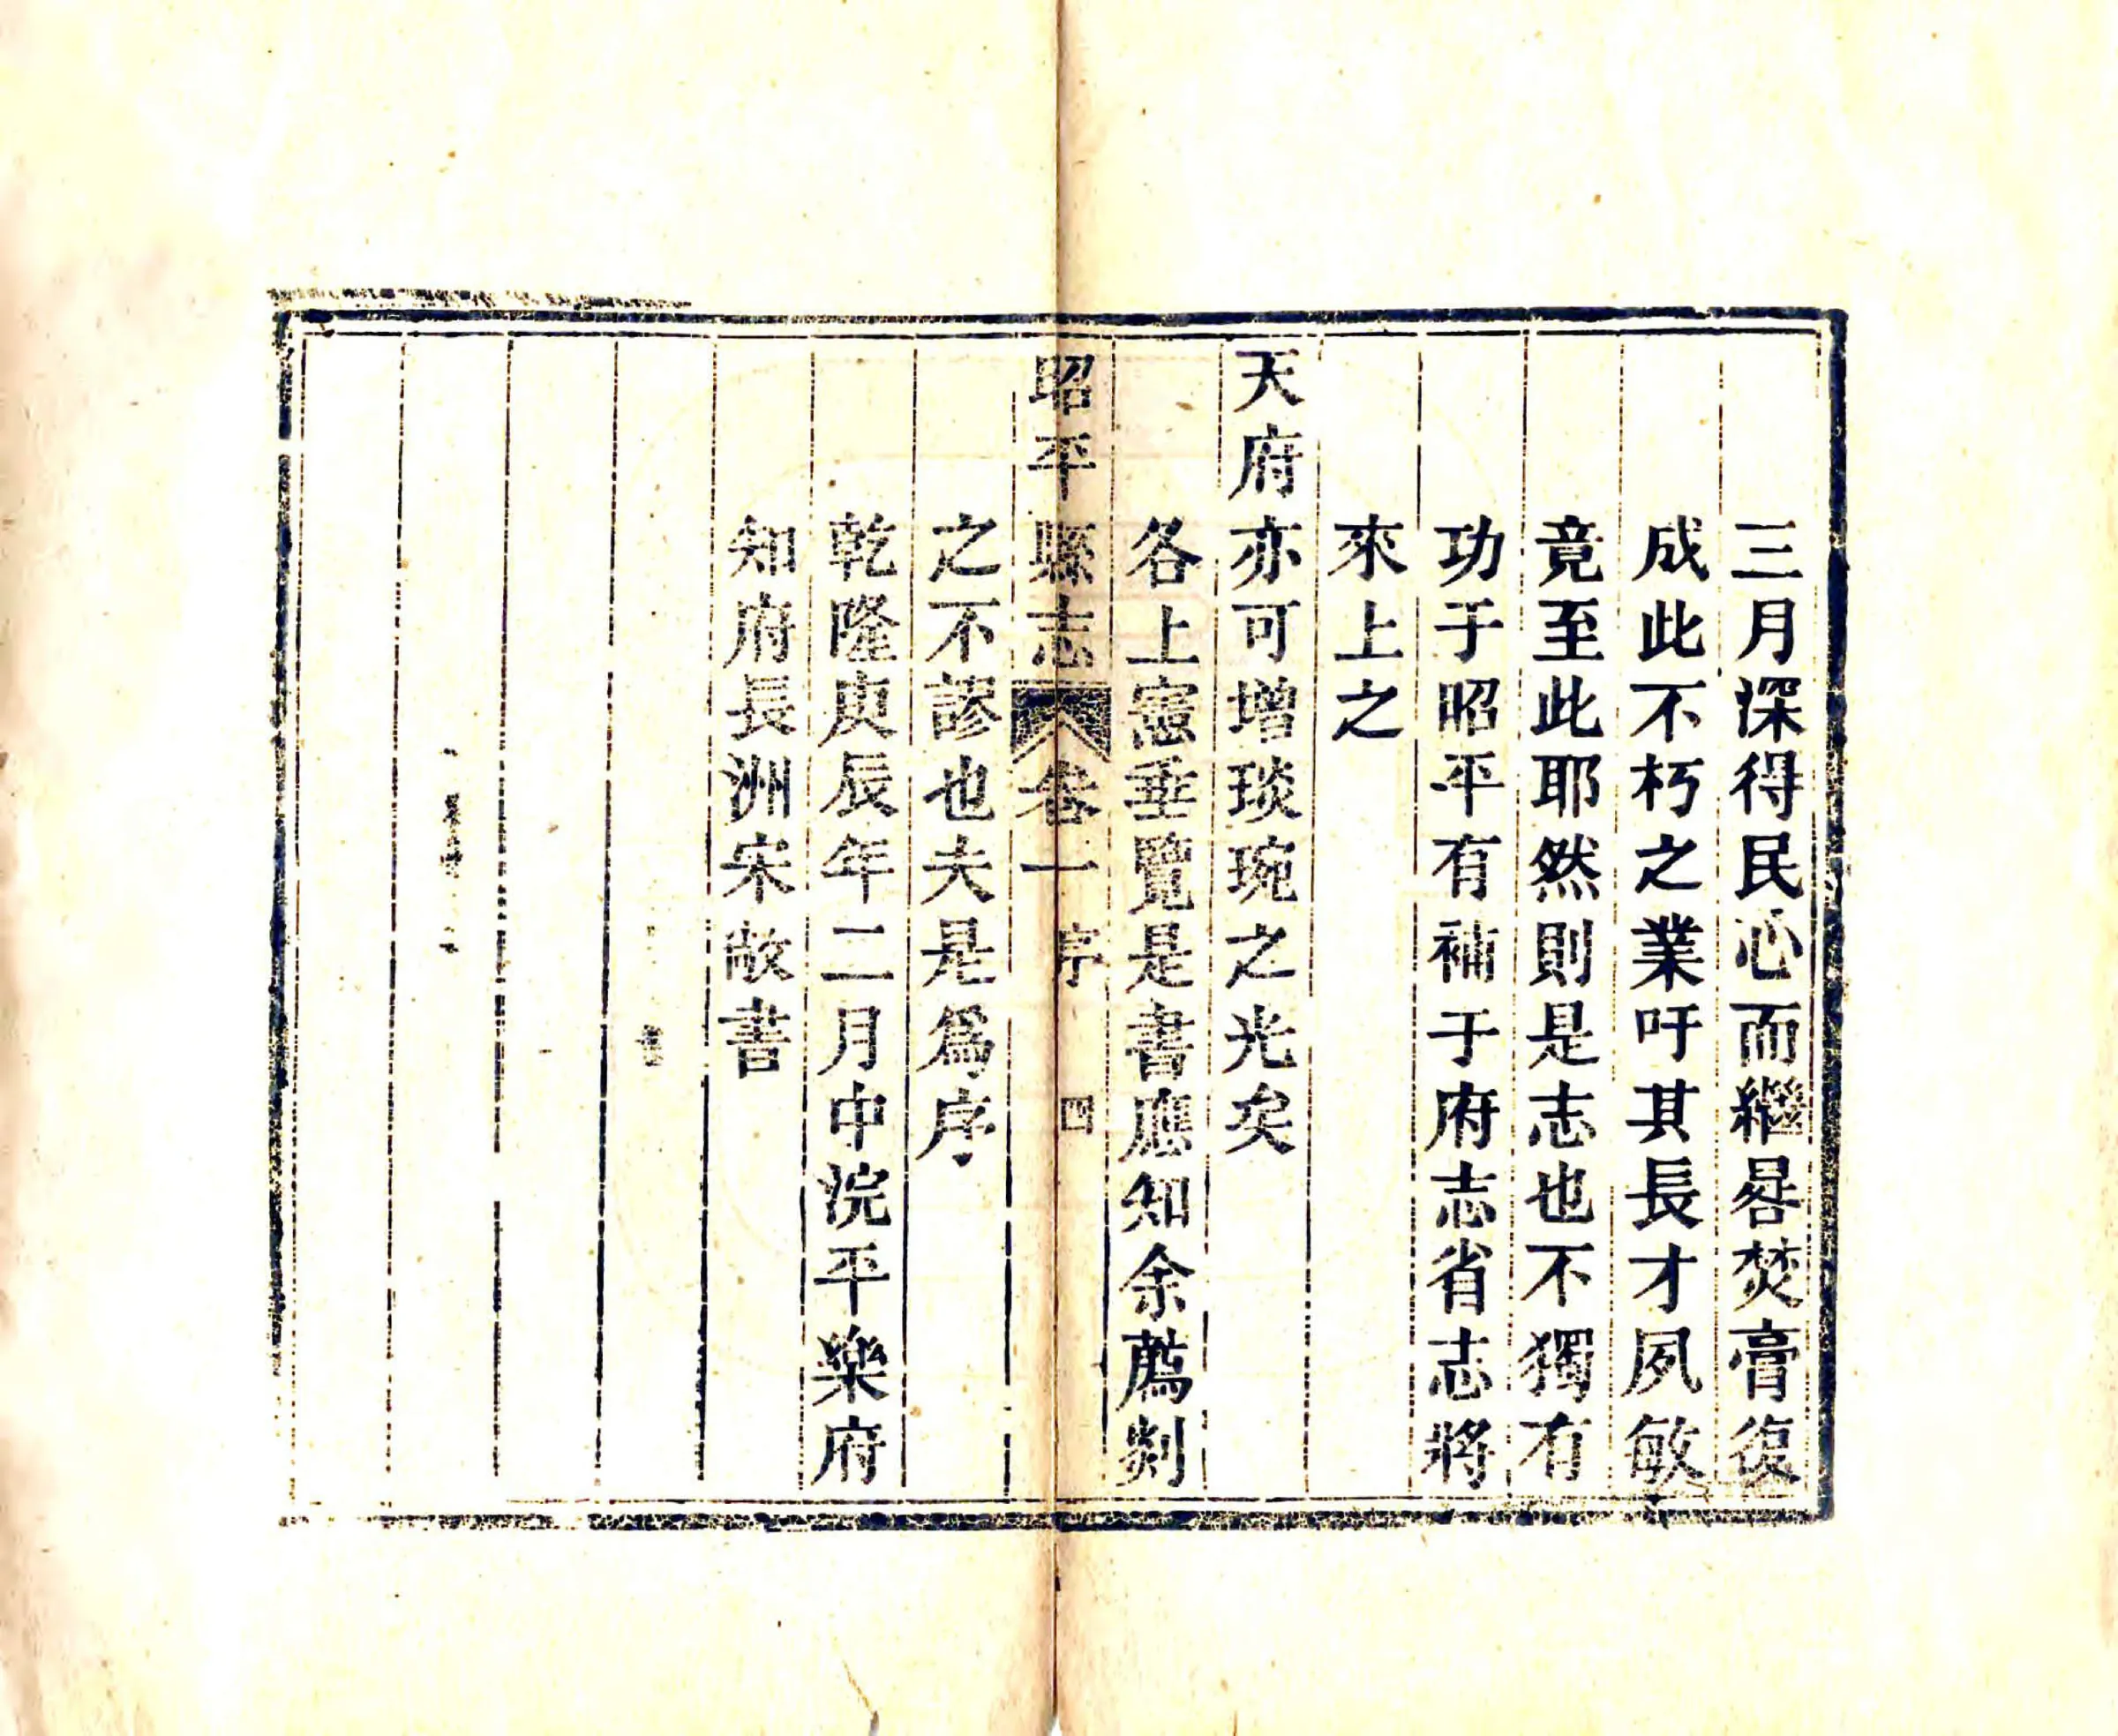 三月深得民心而繼晷焚膏復
成此不朽之業吁其長才夙敏
竟至此耶然則是志也不獨有
功于昭平有補于府志省志將
來上之
天府亦可增琰琬之光矣
各上憲垂覽是書應知余薦剡
昭平縣志 卷一 序 四
之不謬也夫是爲序
乾隆庚辰年二月中浣平樂府
知府長洲宋敞書